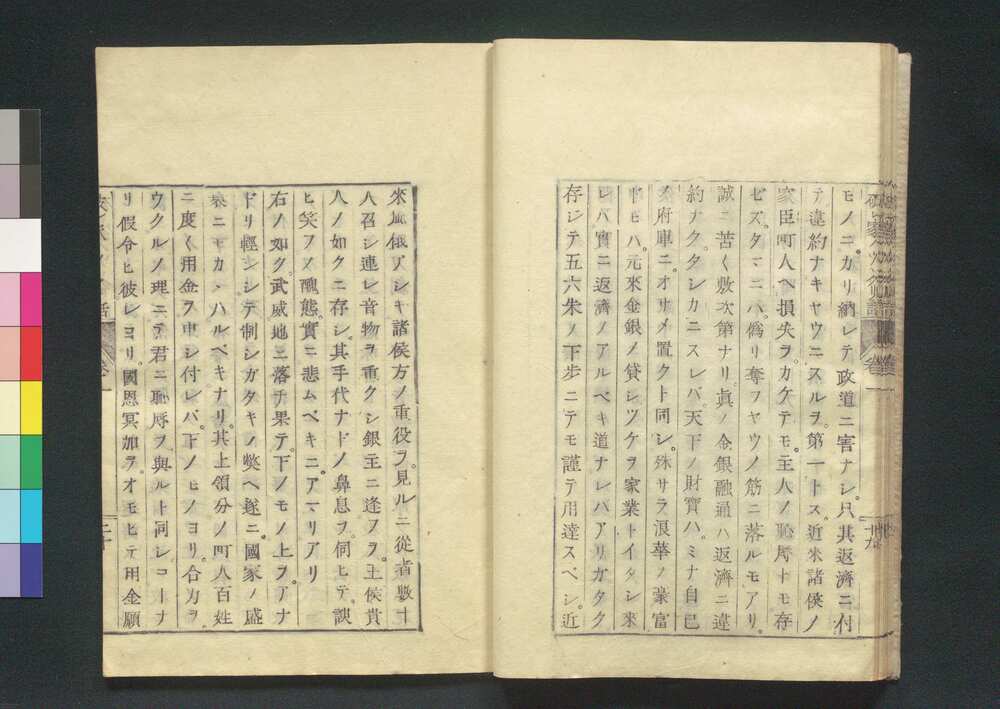 モノニ。カリ納レテ政道ニ害ナシ。只其返濟ニ付
テ。違約ナキヤウニスルヲ。第一トス。近來諸侯ノ
家臣町人ヘ損失ヲ。カケテモ。主人ノ恥辱トモ存
セズ。タマニハ。僞リ奪フヤウノ筋ニ落ルモアリ。
誠ニ苦々敷次第ナリ。眞ノ金銀融通ハ返濟ニ違
約ナク。タシカニスレバ。天下ノ財寶ハ。ミナ自己
ノ府庫ニオサメ置クト同シ。殊サラ浪華ノ豪富
トモハ。元來金銀ノ貸シツケヲ家業トイタシ來
レバ實ニ返濟ノアルベキ道ナレバアリガタク
存シテ五六朱ノ下歩ニテモ謹テ用達スベシ。近
來風俗アシキ諸侯方ノ重役ヲ。見ルニ從者數十
人召シ連レ音物ヲ重クシ銀主ニ逢フヲ。王侯貴
人ノ如クニ存シ。其手代ナドノ鼻息ヲ。伺ヒテ。諛
ヒ笑フノ醜態。實ニ悲ムベキニ。アマリアリ
右ノ如ク。武威地ニ落チ果テ。下ノモノ上ヲ。アナ
ドリ輕シシテ制シガタキノ弊ヘ遂ニ。國家ノ盛
衰ニモカヽハルベキナリ。其上領分ノ町人百姓
ニ度々用金ヲ申シ付レバ。下ノモノヨリ。合力ヲ。
ウクルノ理ニテ。君ニ恥辱ヲ。與ルト同シ。コトナ
リ假令ヒ彼レヨリ。國恩冥加ヲ。オモヒテ用金願